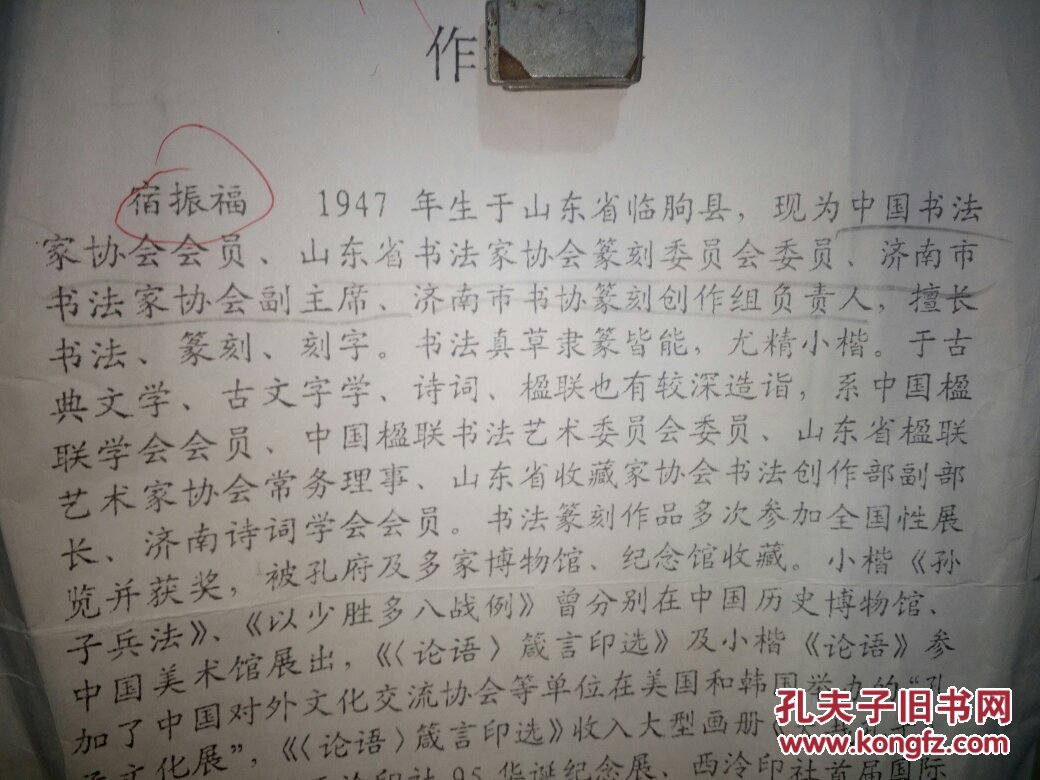 作
宿振福 1947 年生于山东省临朐县，现为中国书法
家协会会员、山东省书法家协会篆刻委员会委员、济南市
书法家协会副主席、济南市书协篆刻创作组负责人，擅长
书法、篆刻、刻字。书法真草隶篆皆能，尤精小楷。于古
典文学、古文字学、诗词、楹联也有较深造诣，系中国楹
联学会会员、中国楹联书法艺术委员会委员、山东省楹联
艺术家协会常务理事、山东省收藏家协会书法创作部副部
长、济南诗词学会会员。书法篆刻作品多次参加全国性展
览并获奖，被孔府及多家博物馆、纪念馆收藏。小楷《孙
子兵法》、《以少胜多八战例》曾分别在中国历史博物馆、
中国美术馆展出，《〈论语〉箴言印选》及小楷《论语》参
加了中国对外文化交流协会等单位在美国和韩国举办的“孔
子文化展”，《〈论语〉箴言印选》收入大型画册《
西泠印社 95 华诞纪念展、西泠印社首届国际
孔夫子旧书网
www.kongfz.com